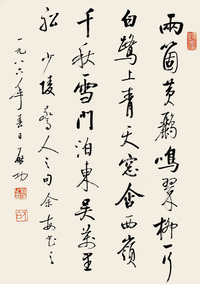 兩箇黃鸝鳴翠柳一行
白鷺上青天窓含西嶺
千秋雪門泊東吳萬里
船 少陵驚人之句余每書之
一九八六年春日啟功